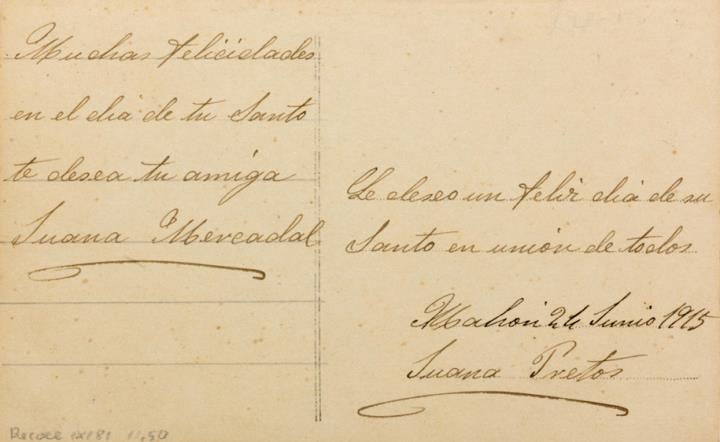 Muchas felicidades
en el dia de tu Santo
te desea tu amiga
Juana Mercadal
Le deseo un feliz dia de su
Santo en unión de todos
Mahon 24 Junio 1915
Juana Pretos
11,50